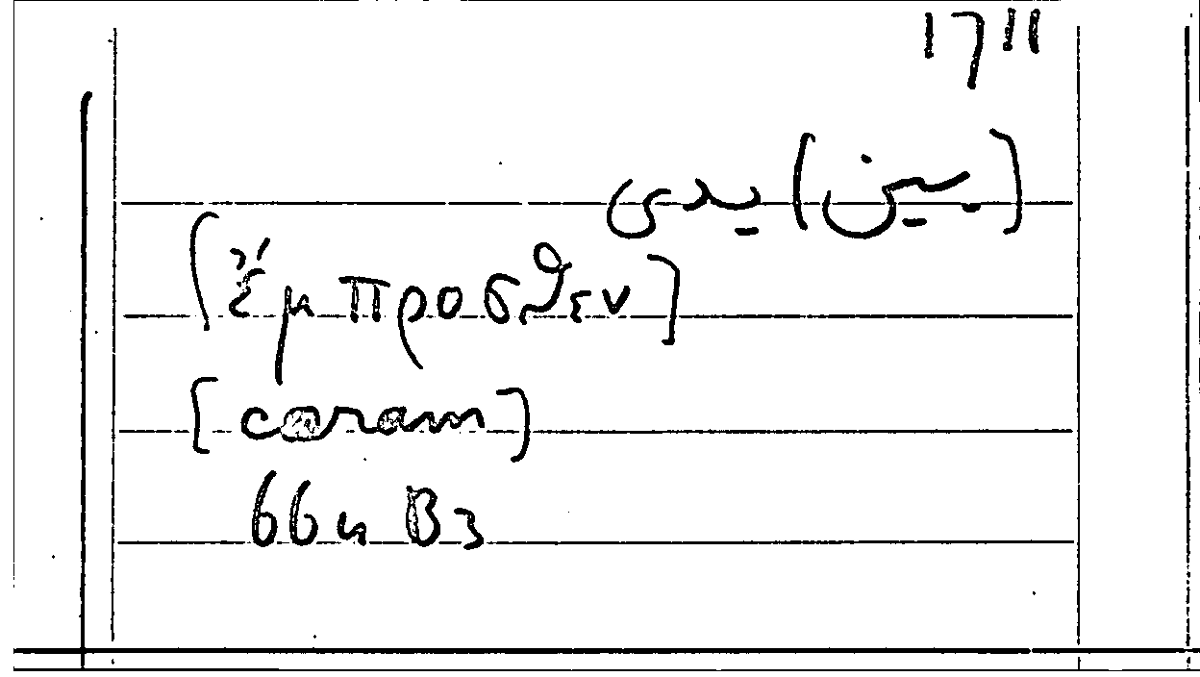 1711
(بين) يدى
[ἔμπροσθεν]
[coram]
66u B3